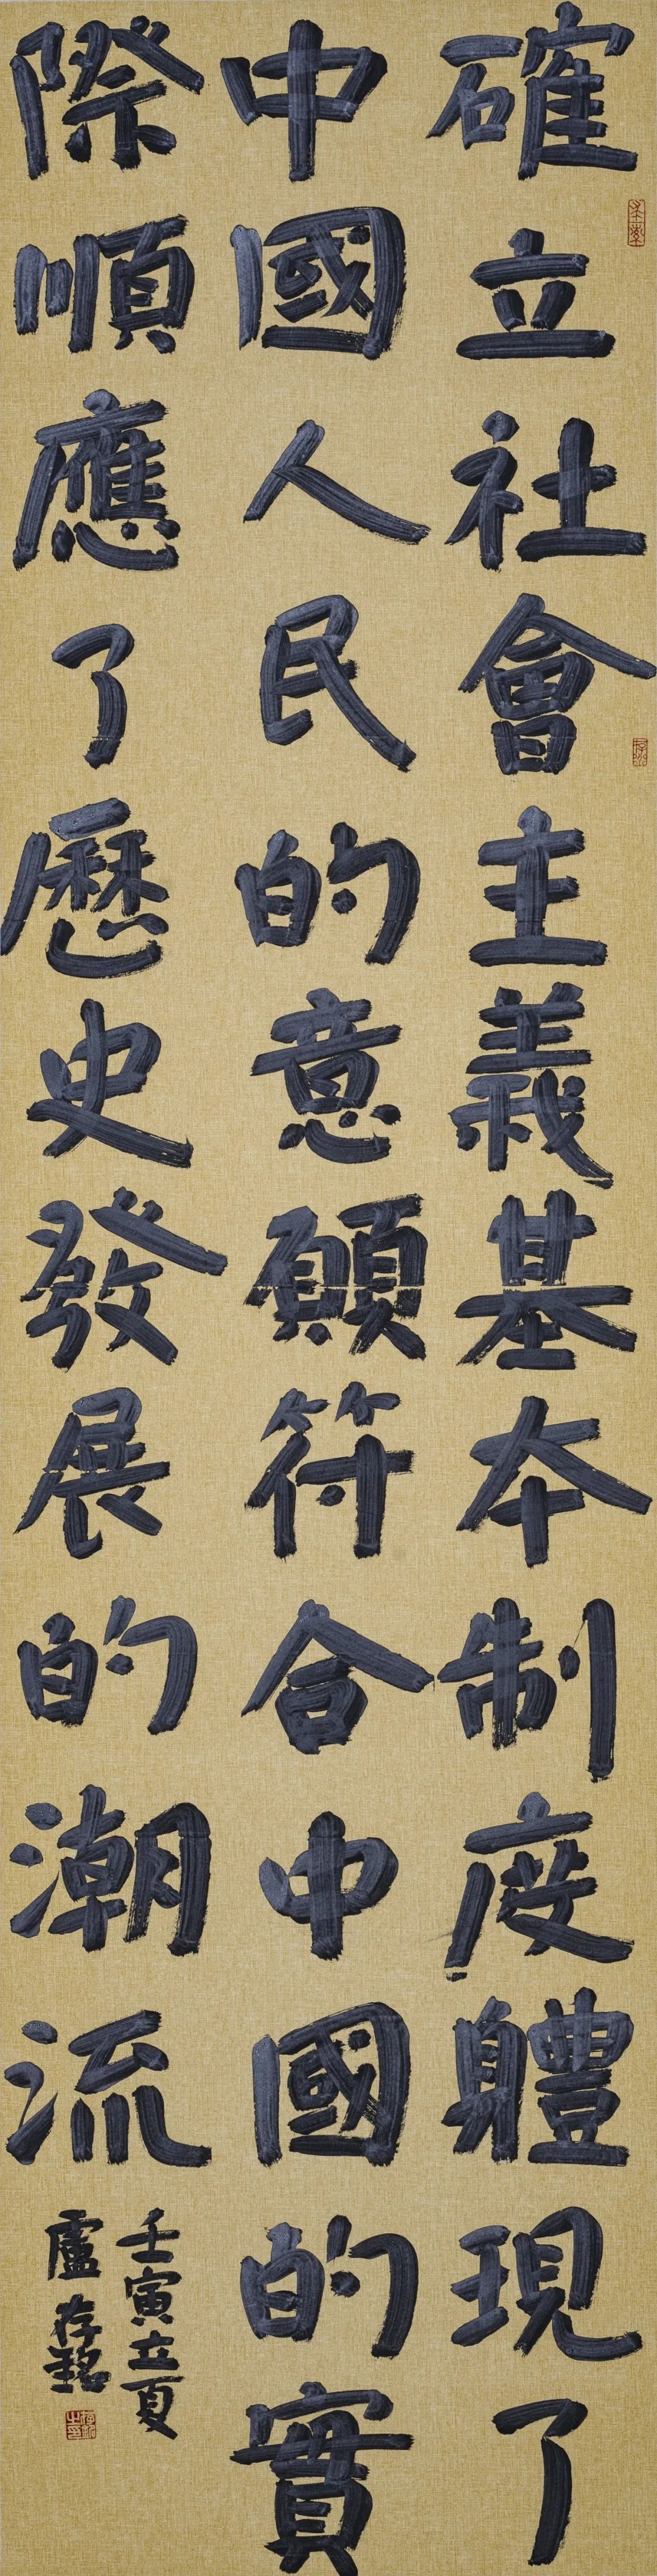 確立社會主義基本制度體現了
中國人民的意願符合中國的實
際順應了歷史發展的潮流
壬寅立夏
盧存銘